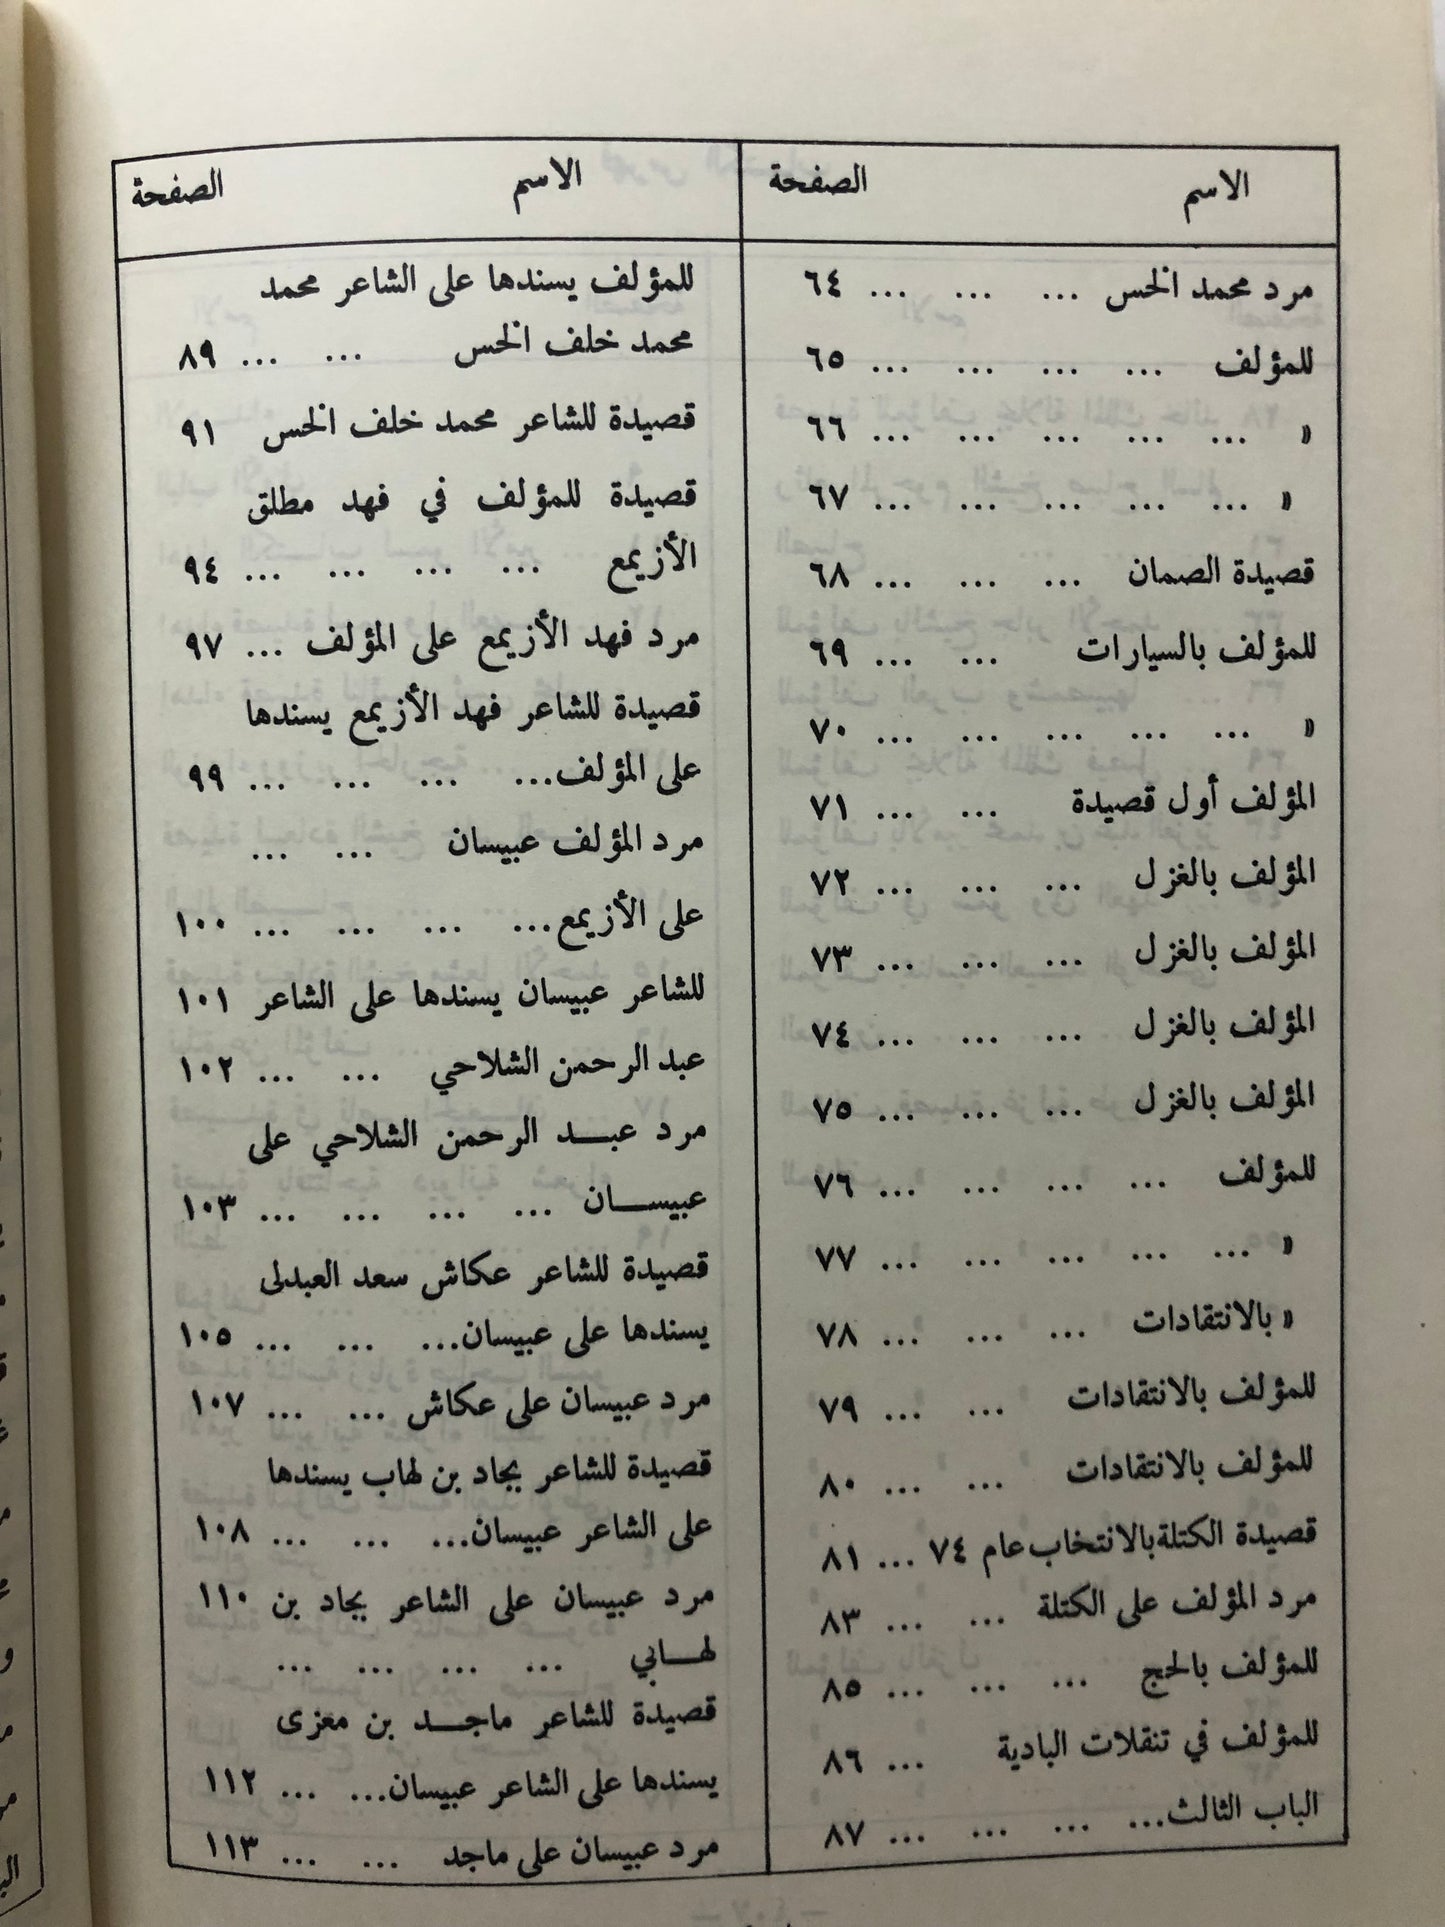 الاسم الصفحة
مرد محمد الخس ... ... ... ٦٤
للمؤلف ... ... ... ... ٦٥
» ... ... ... ... ... ٦٦
» ... ... ... ... ... ٦٧
قصيدة الصمان ... ... ... ٦٨
للمؤلف بالسيارات ... ... ٦٩
» ... ... ... ... ... ٧٠
المؤلف أول قصيدة ... ... ٧١
المؤلف بالغزل ... ... ... ٧٢
المؤلف بالغزل ... ... ... ٧٣
المؤلف بالغزل ... ... ... ٧٤
المؤلف بالغزل ... ... ... ٧٥
للمؤلف ... ... ... ... ٧٦
» ... ... ... ... ... ٧٧
» بالانتقادات ... ... ... ٧٨
للمؤلف بالانتقادات ... ... ٧٩
للمؤلف بالانتقادات ... ... ٨٠
قصيدة الكتلة بالانتخاب عام ٧٤ ... ٨١
مرد المؤلف على الكتلة ... ... ٨٣
للمؤلف بالحج ... ... ... ٨٥
للمؤلف في تنقلات البادية ... ٨٦
الباب الثالث... ... ... ... ٨٧
الاسم الصفحة
للمؤلف يسندها على الشاعر محمد
محمد خلف الخس ... ... ٨٩
قصيدة للشاعر محمد خلف الخس ٩١
قصيدة للمؤلف في فهد مطلق
الأزيمع ... ... ... ... ٩٤
مرد فهد الأزيمع على المؤلف ... ٩٧
قصيدة للشاعر فهد الأزيمع يسندها
على المؤلف... ... ... ... ٩٩
مرد المؤلف عبيسان ... ...
على الأزيمع... ... ... ... ١٠٠
للشاعر عبيسان يسندها على الشاعر ١٠١
عبد الرحمن الشلاحي ... ... ١٠٢
مرد عبد الرحمن الشلاحي على
عبيسان ... ... ... ... ١٠٣
قصيدة للشاعر عكاش سعد العبدلى
يسندها على عبيسان... ... ... ١٠٥
مرد عبيسان على عكاش ... ... ١٠٧
قصيدة للشاعر بجاد بن لهاب يسندها
على الشاعر عبيسان... ... ... ١٠٨
مرد عبيسان على الشاعر بجاد بن ١١٠
لهابي ... ... ... ...
قصيدة للشاعر ماجد بن معزى
يسندها على الشاعر عبيسان... ... ١١٢
مرد عبيسان على ماجد ... ... ١١٣